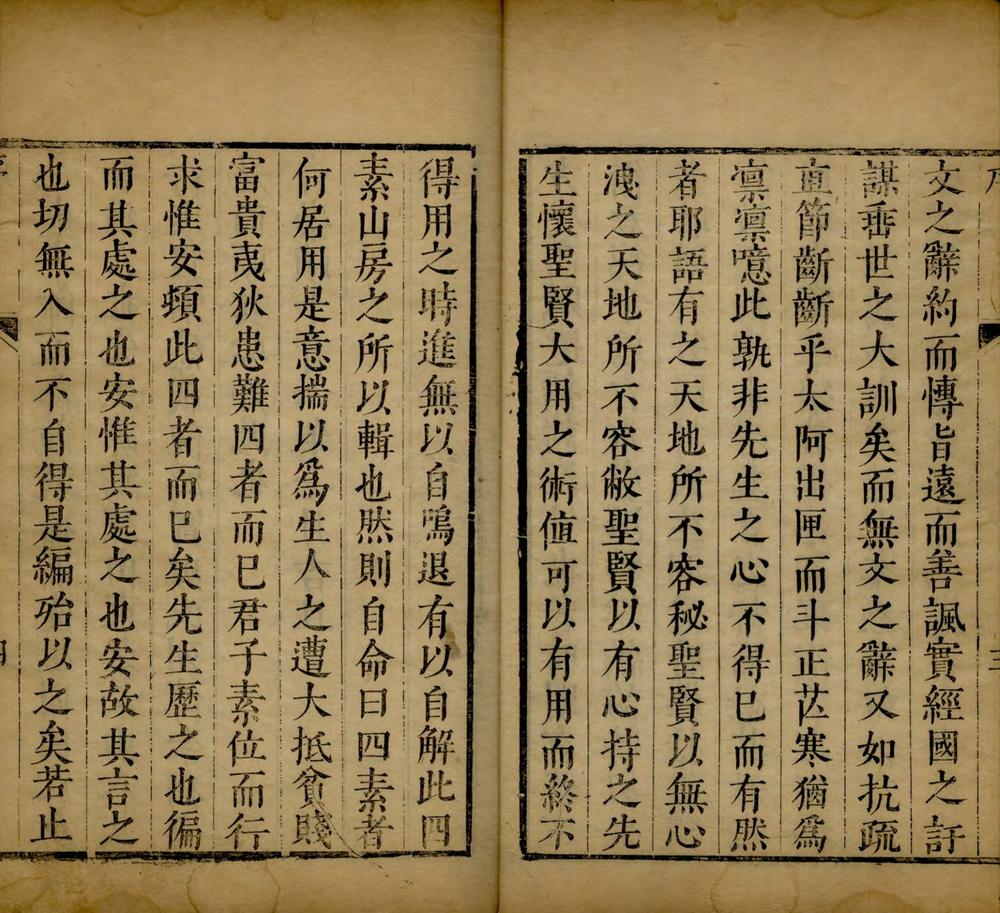 文之辭約而慱旨遠而善諷實經國之訏
謀垂世之大訓矣而無文之辭又如抗疏
直節斷斷乎太阿出匣而斗正芒寒猶爲
凛凛噫此孰非先生之心不得已而有然
者耶語有之天地所不容秘聖賢以無心
洩之天地所不容敝聖賢以有心持之先
生懷聖賢大用之術値可以有用而終不
得用之時進無以自鳴退有以自解此四
素山房之所以輯也然則自命曰四素者
何居用是意揣以爲生人之遭大抵貧賤
富貴夷狄患難四者而已君子素位而行
求惟安頓此四者而已矣先生歷之也徧
而其處之也安惟其處之也安故其言之
也切無入而不自得是編殆以之矣若止